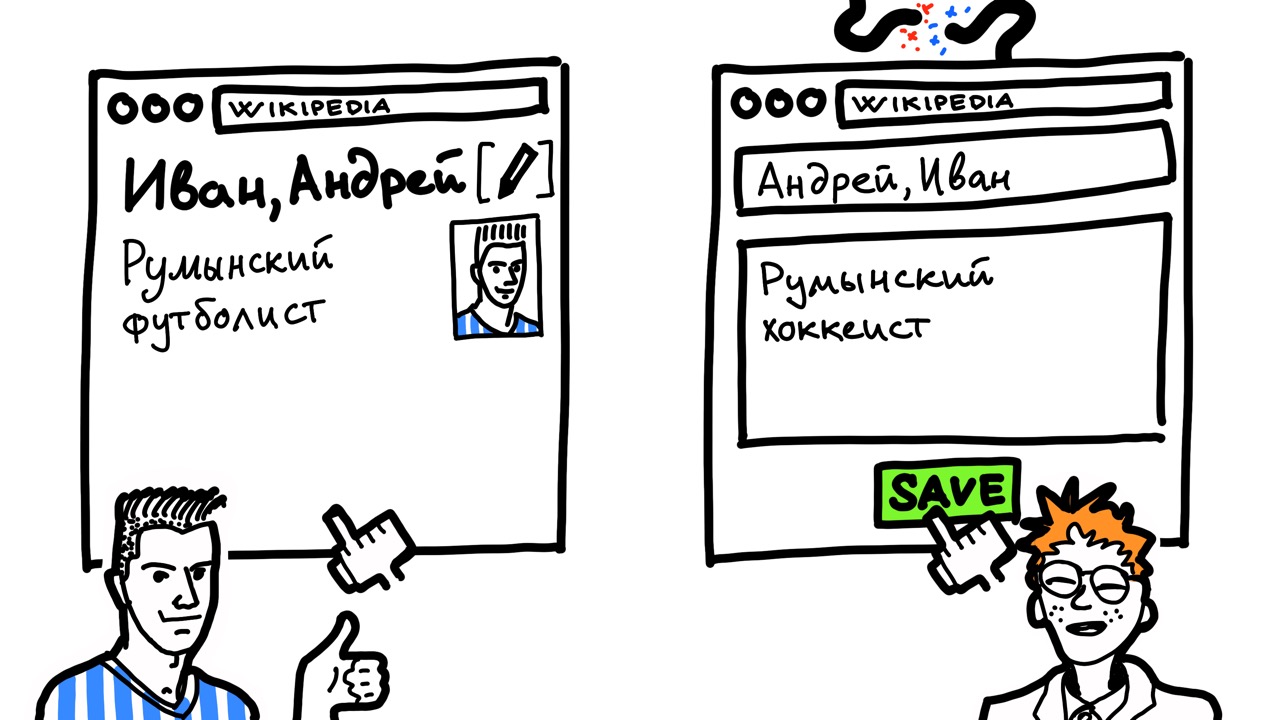 WIKIPEDIA
Иван, Андрей
Румынский
футболист
WIKIPEDIA
Андрей, Иван
Румынский
хоккеист
SAVE